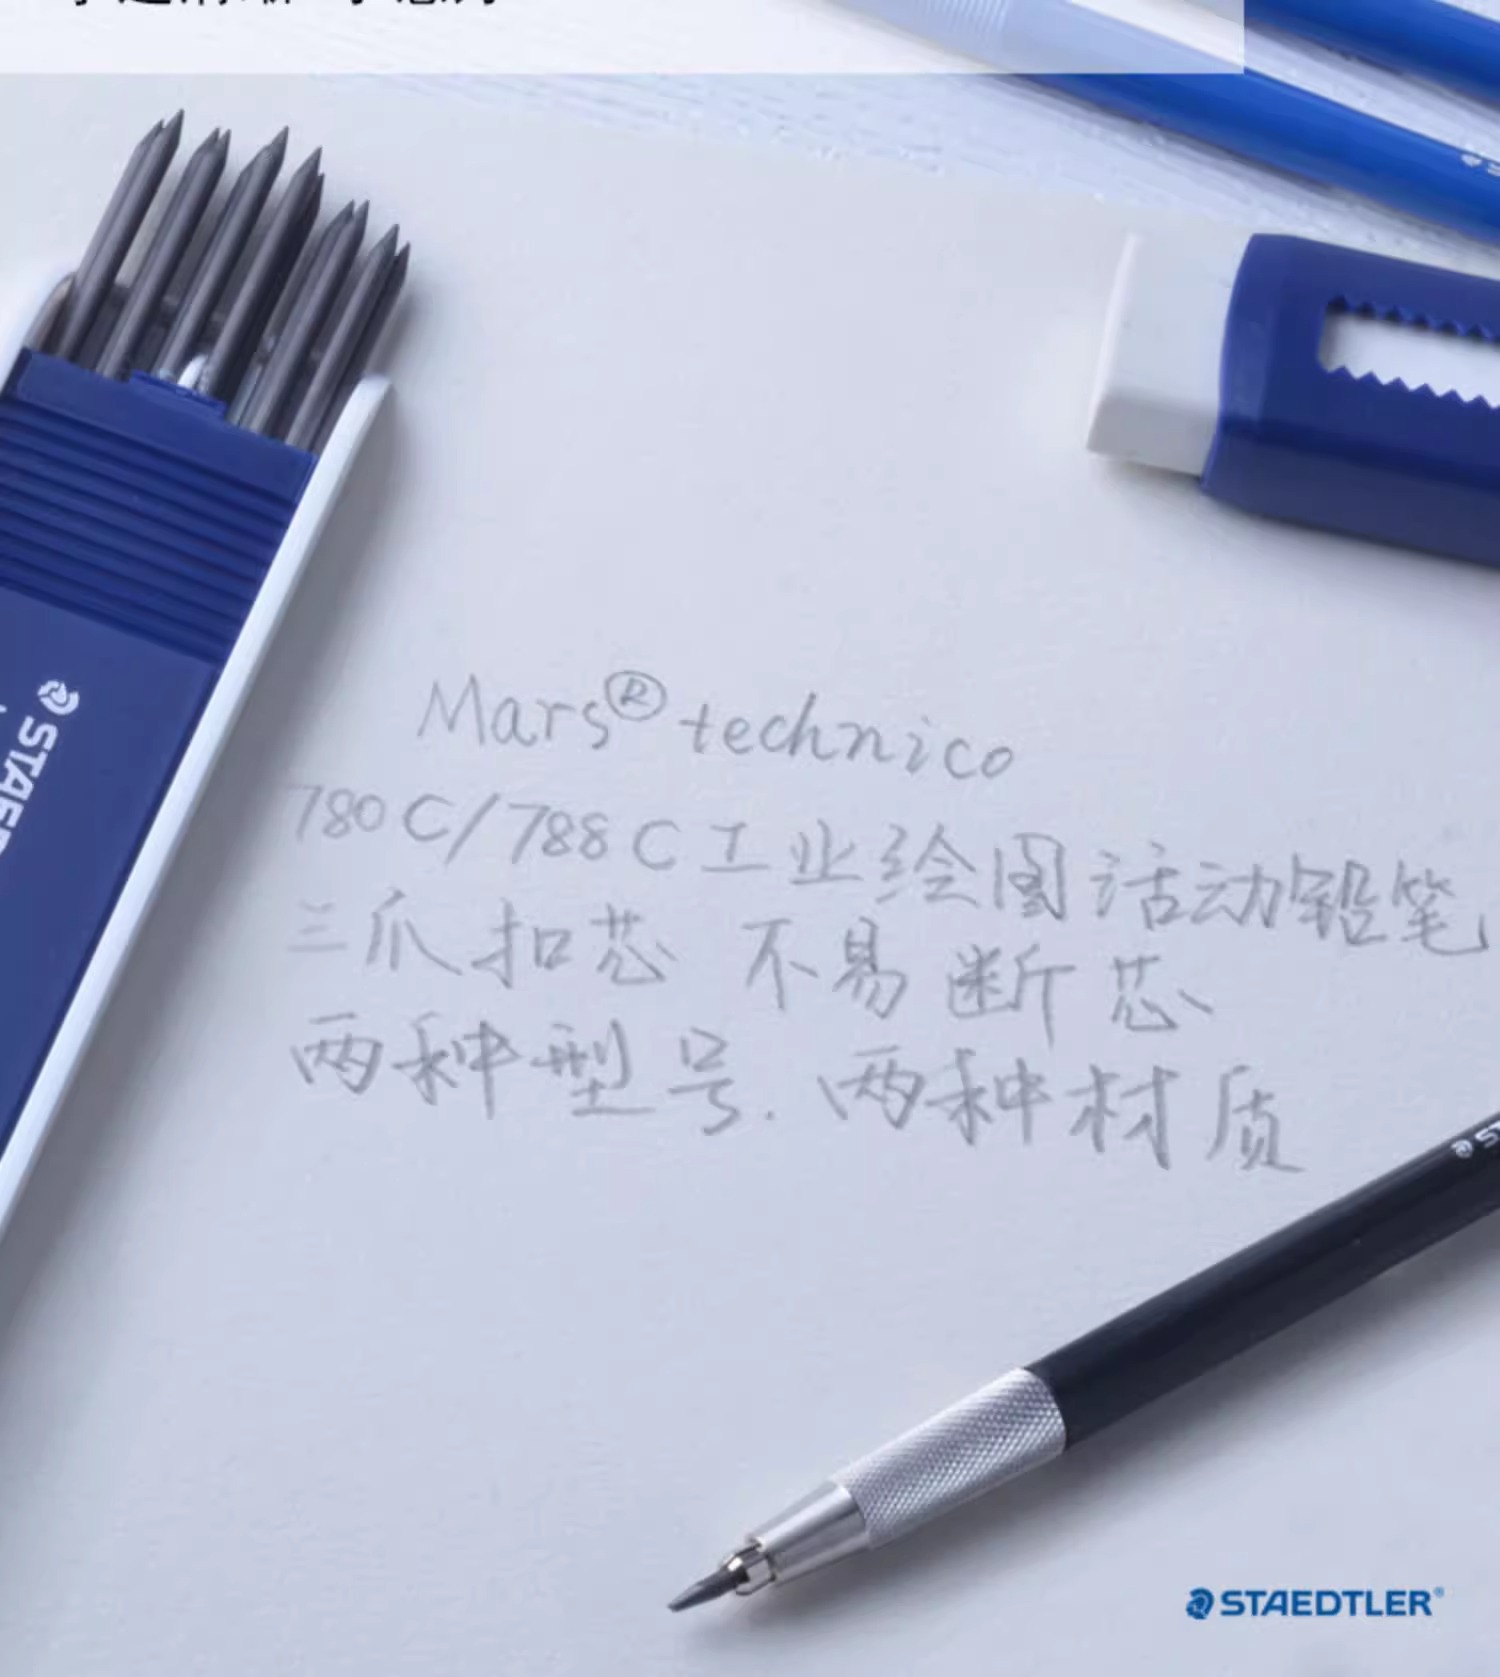 STAED
Mars® technico
780C/788C工业绘图活动铅笔
三爪扣芯 不易断芯
两种型号.两种材质
STAEDTLER®